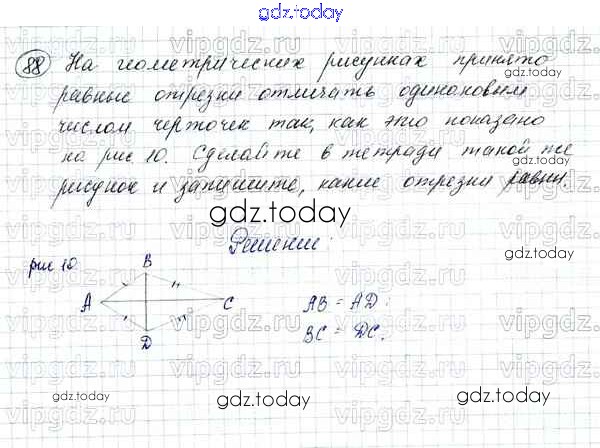 gdz.today
88 На геометрических рисунках принято
равные отрезки отличать одинаковым
числом черточек так, как это показано
на рис 10. Сделайте в тетради такой же
рисунок и запишите, какие отрезки равны.
gdz.today
gdz.today
Решение:
рис 10
B
A
C
D
AB = AD;
BC = DC.
vipgdz.ru
gdz.today
gdz.today
gdz.today